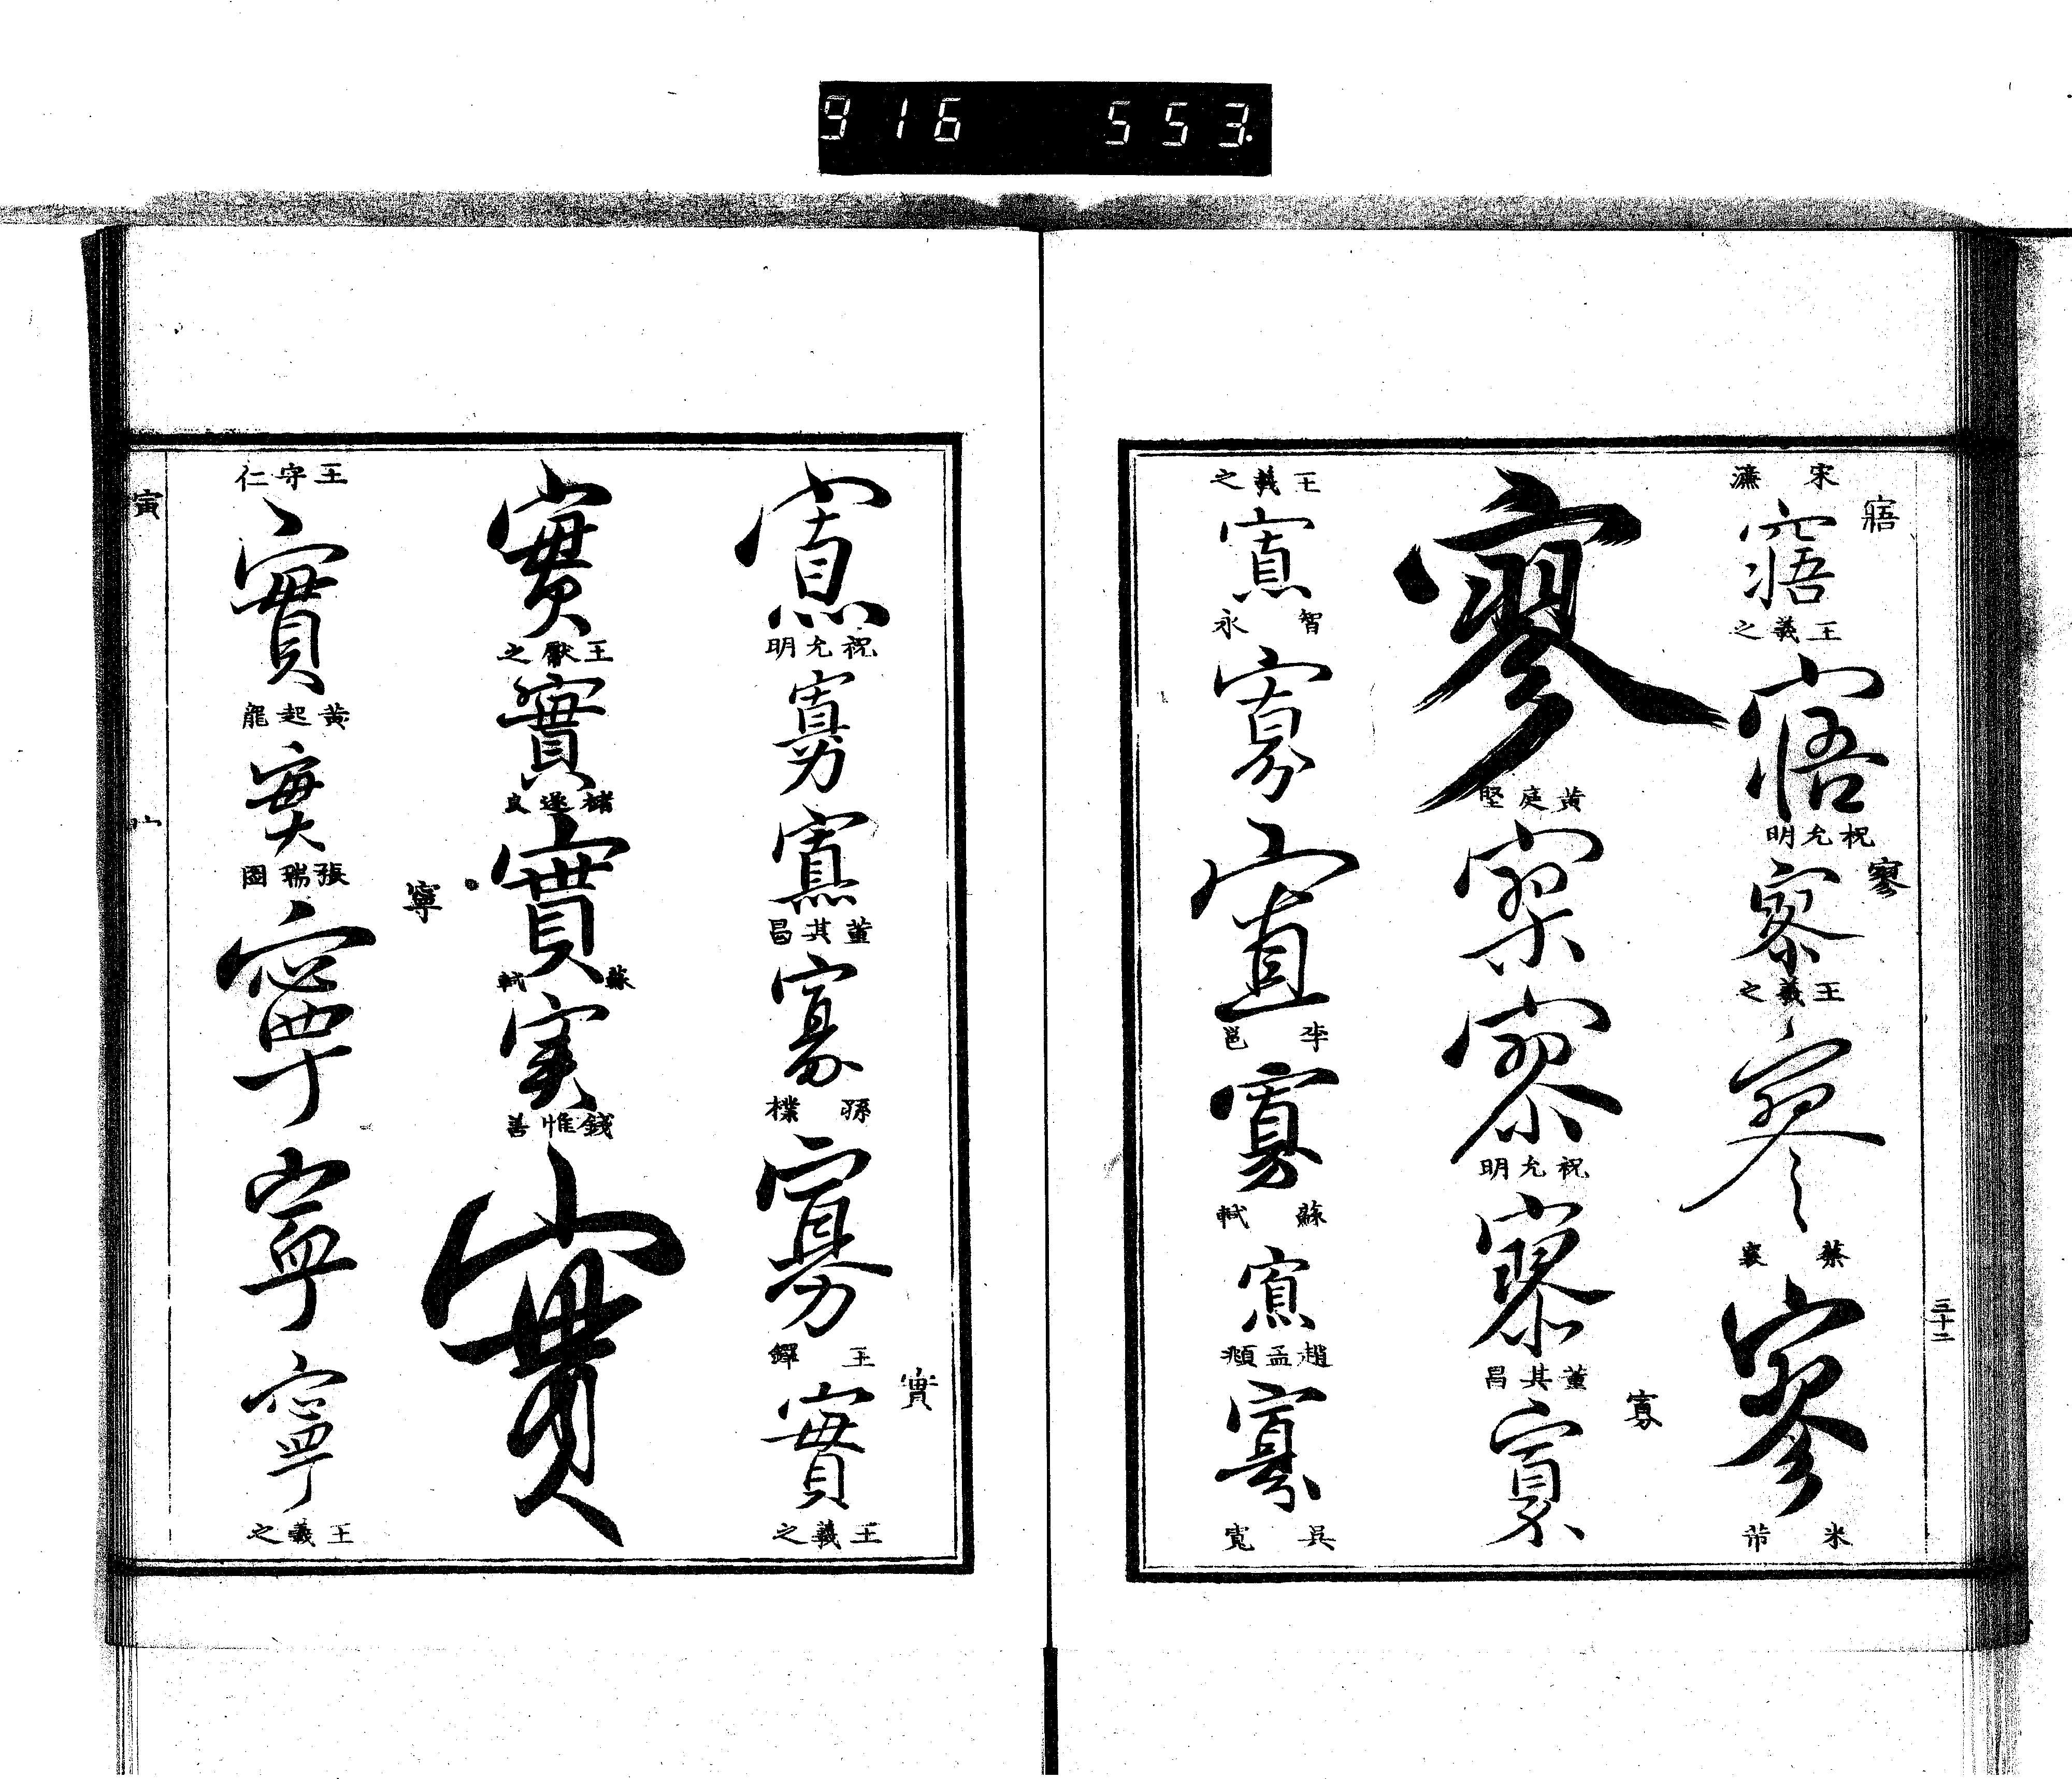 916 553.
三十二
寤
宋濂
寤
王羲之
寤
祝允明
寥
寥
王羲之
寥
蔡襄
寥
米芾
寥
黄庭堅
寥
寥
祝允明
寥
董其昌
寡
寡
王羲之
寡
智永
寡
寡
李邕
寡
蘇軾
寡
趙孟頫
寡
吳寬
寡
祝允明
寡
寡
董其昌
寡
孫樸
寡
王鐸
實
實
王羲之
實
王獻之
實
褚遂良
實
蘇軾
实
錢惟善
實
王守仁
實
黄起龍
實
張瑞圖
寧
寧
寧
寧
王羲之
寅
宀